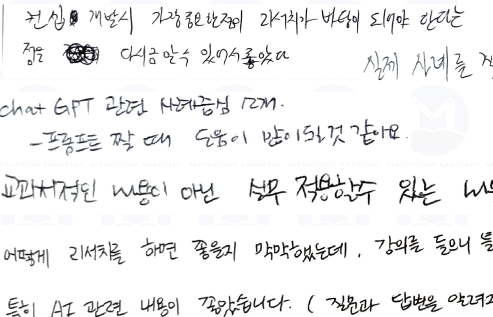 컨셉 개발시 가장 중요한 점이 리서치가 바탕이 되어야 한다는
점을 다시금 알 수 있어서 좋았다
실제 사례를
chat GPT 관련 사례중심 소개.
- 프롬프트 짤 때 도움이 많이 될 것 같아요.
교과서적인 내용이 아닌 실무 적용할 수 있는
어떻게 리서치를 하면 좋을지 막막했는데, 강의를 들으니
특히 AI 관련 내용이 좋았습니다. ( 질문과 답변을